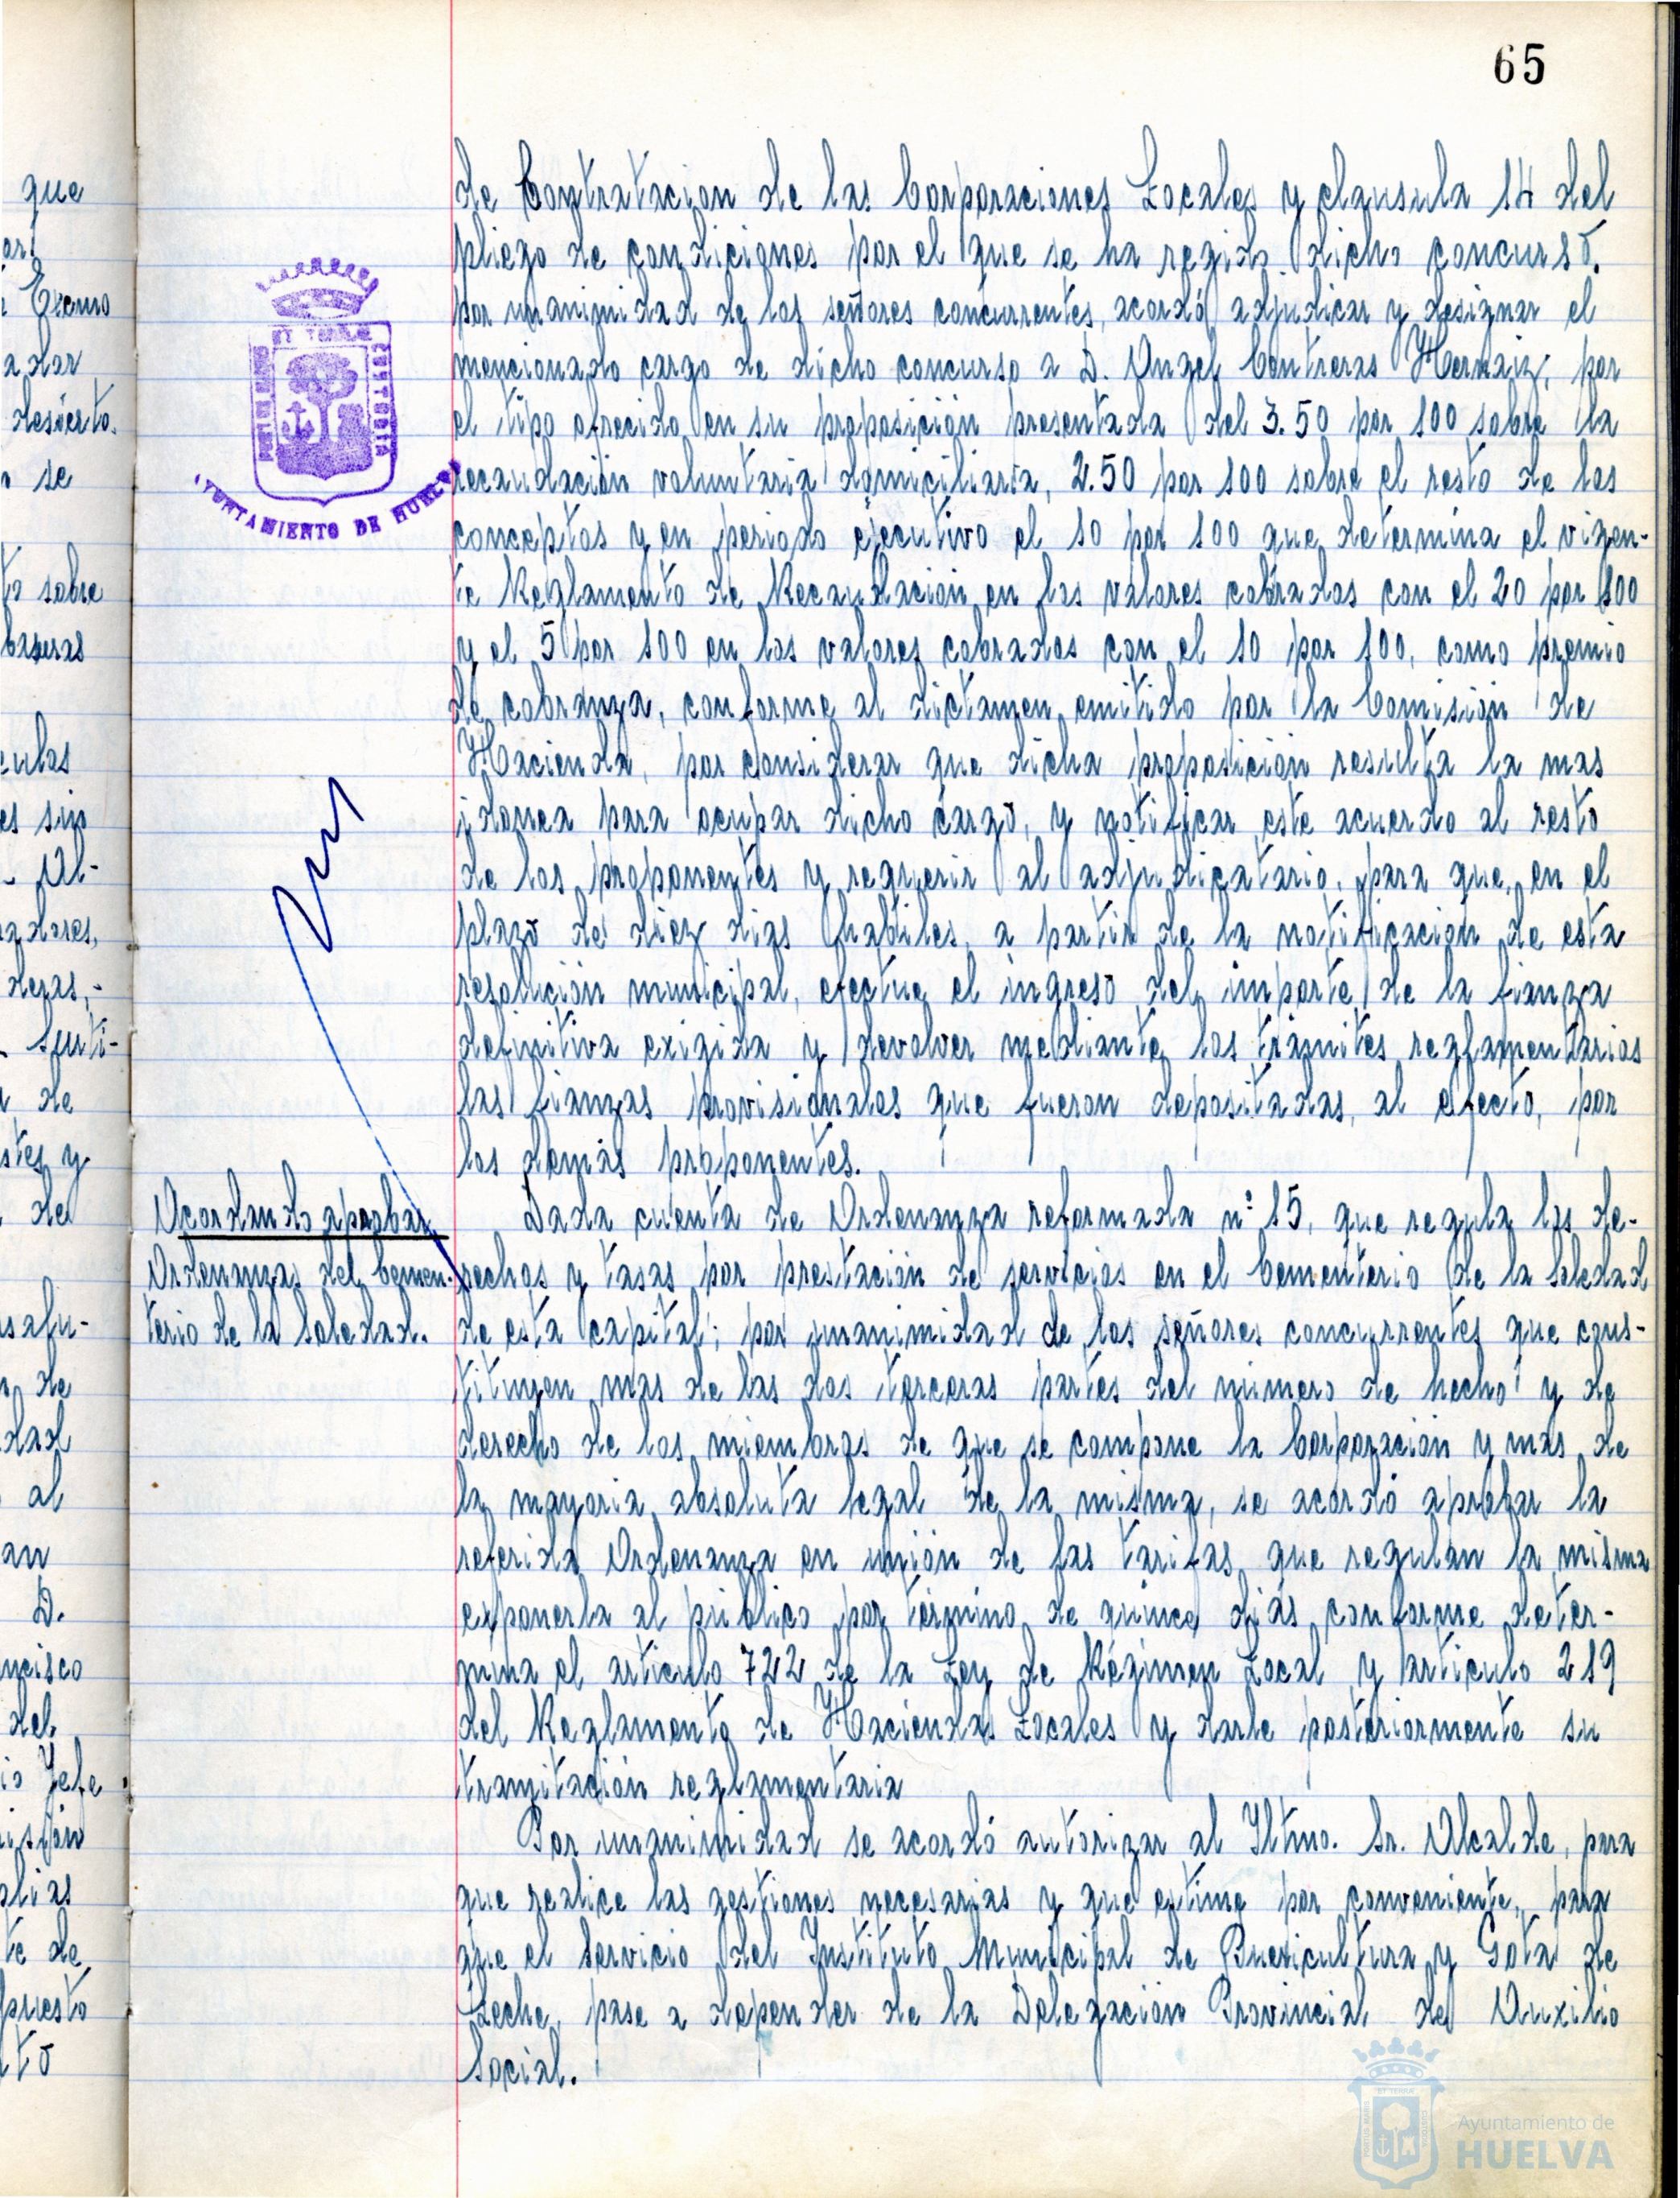 65
de Contratacion de las Corporaciones Locales y clausula 14 del
pliego de condiciones por el que se ha regido dicho concurso.
por unanimidad de los señores concurrentes, acordó adjudicar y designar el
mencionado cargo de dicho concurso a D. Angel Contreras Hernaiz, por
el tipo ofrecido en su proposición presentada del 3.50 por 100 sobre la
recaudación voluntaria domiciliaria, 2.50 por 100 sobre el resto de los
conceptos y en periodo ejecutivo el 10 por 100 que determina el vigen-
te Reglamento de Recaudación en los valores cobrados con el 20 por 100
y el 5 por 100 en los valores cobrados con el 10 por 100, como premio
de cobranza, conforme al dictamen emitido por la Comisión de
Hacienda, por considerar que dicha proposición resulta la mas
idonea para ocupar dicho cargo, y notificar este acuerdo al resto
de los proponentes y requerir al adjudicatario, para que, en el
plazo de diez dias habiles, a partir de la notificación de esta
resolución municipal, efectue el ingreso del importe de la fianza
definitiva exigida y devolver mediante los trámites reglamentarios
las fianzas provisionales que fueron depositadas, al efecto, por
los demás proponentes.
Acordando aprobar
Ordenanzas del Cemen-
terio de la Soledad.
Dada cuenta de Ordenanza reformada nº 15, que regula los de-
rechos y tasas por prestación de servicios en el Cementerio de la Soledad
de esta capital; por unanimidad de los señores concurrentes que cons-
tituyen mas de las dos terceras partes del número de hecho y de
derecho de los miembros de que se compone la Corporación y mas de
la mayoria absoluta legal de la misma, se acordó aprobar la
referida Ordenanza en unión de las tarifas que regulan la misma
exponerla al público por término de quince dias conforme deter-
mina el articulo 722 de la Ley de Régimen Local y articulo 219
del Reglamento de Haciendas Locales y darle posteriormente su
tramitación reglamentaria
Por unanimidad se acordó autorizar al Iltmo. Sr. Alcalde, para
que realice las gestiones necesarias y que estime por conveniente, para
que el Servicio del Instituto Municipal de Puericultura y Gota de
Leche, pase a depender de la Delegación Provincial de Auxilio
Social.
AYUNTAMIENTO DE HUELVA
Ayuntamiento de
HUELVA